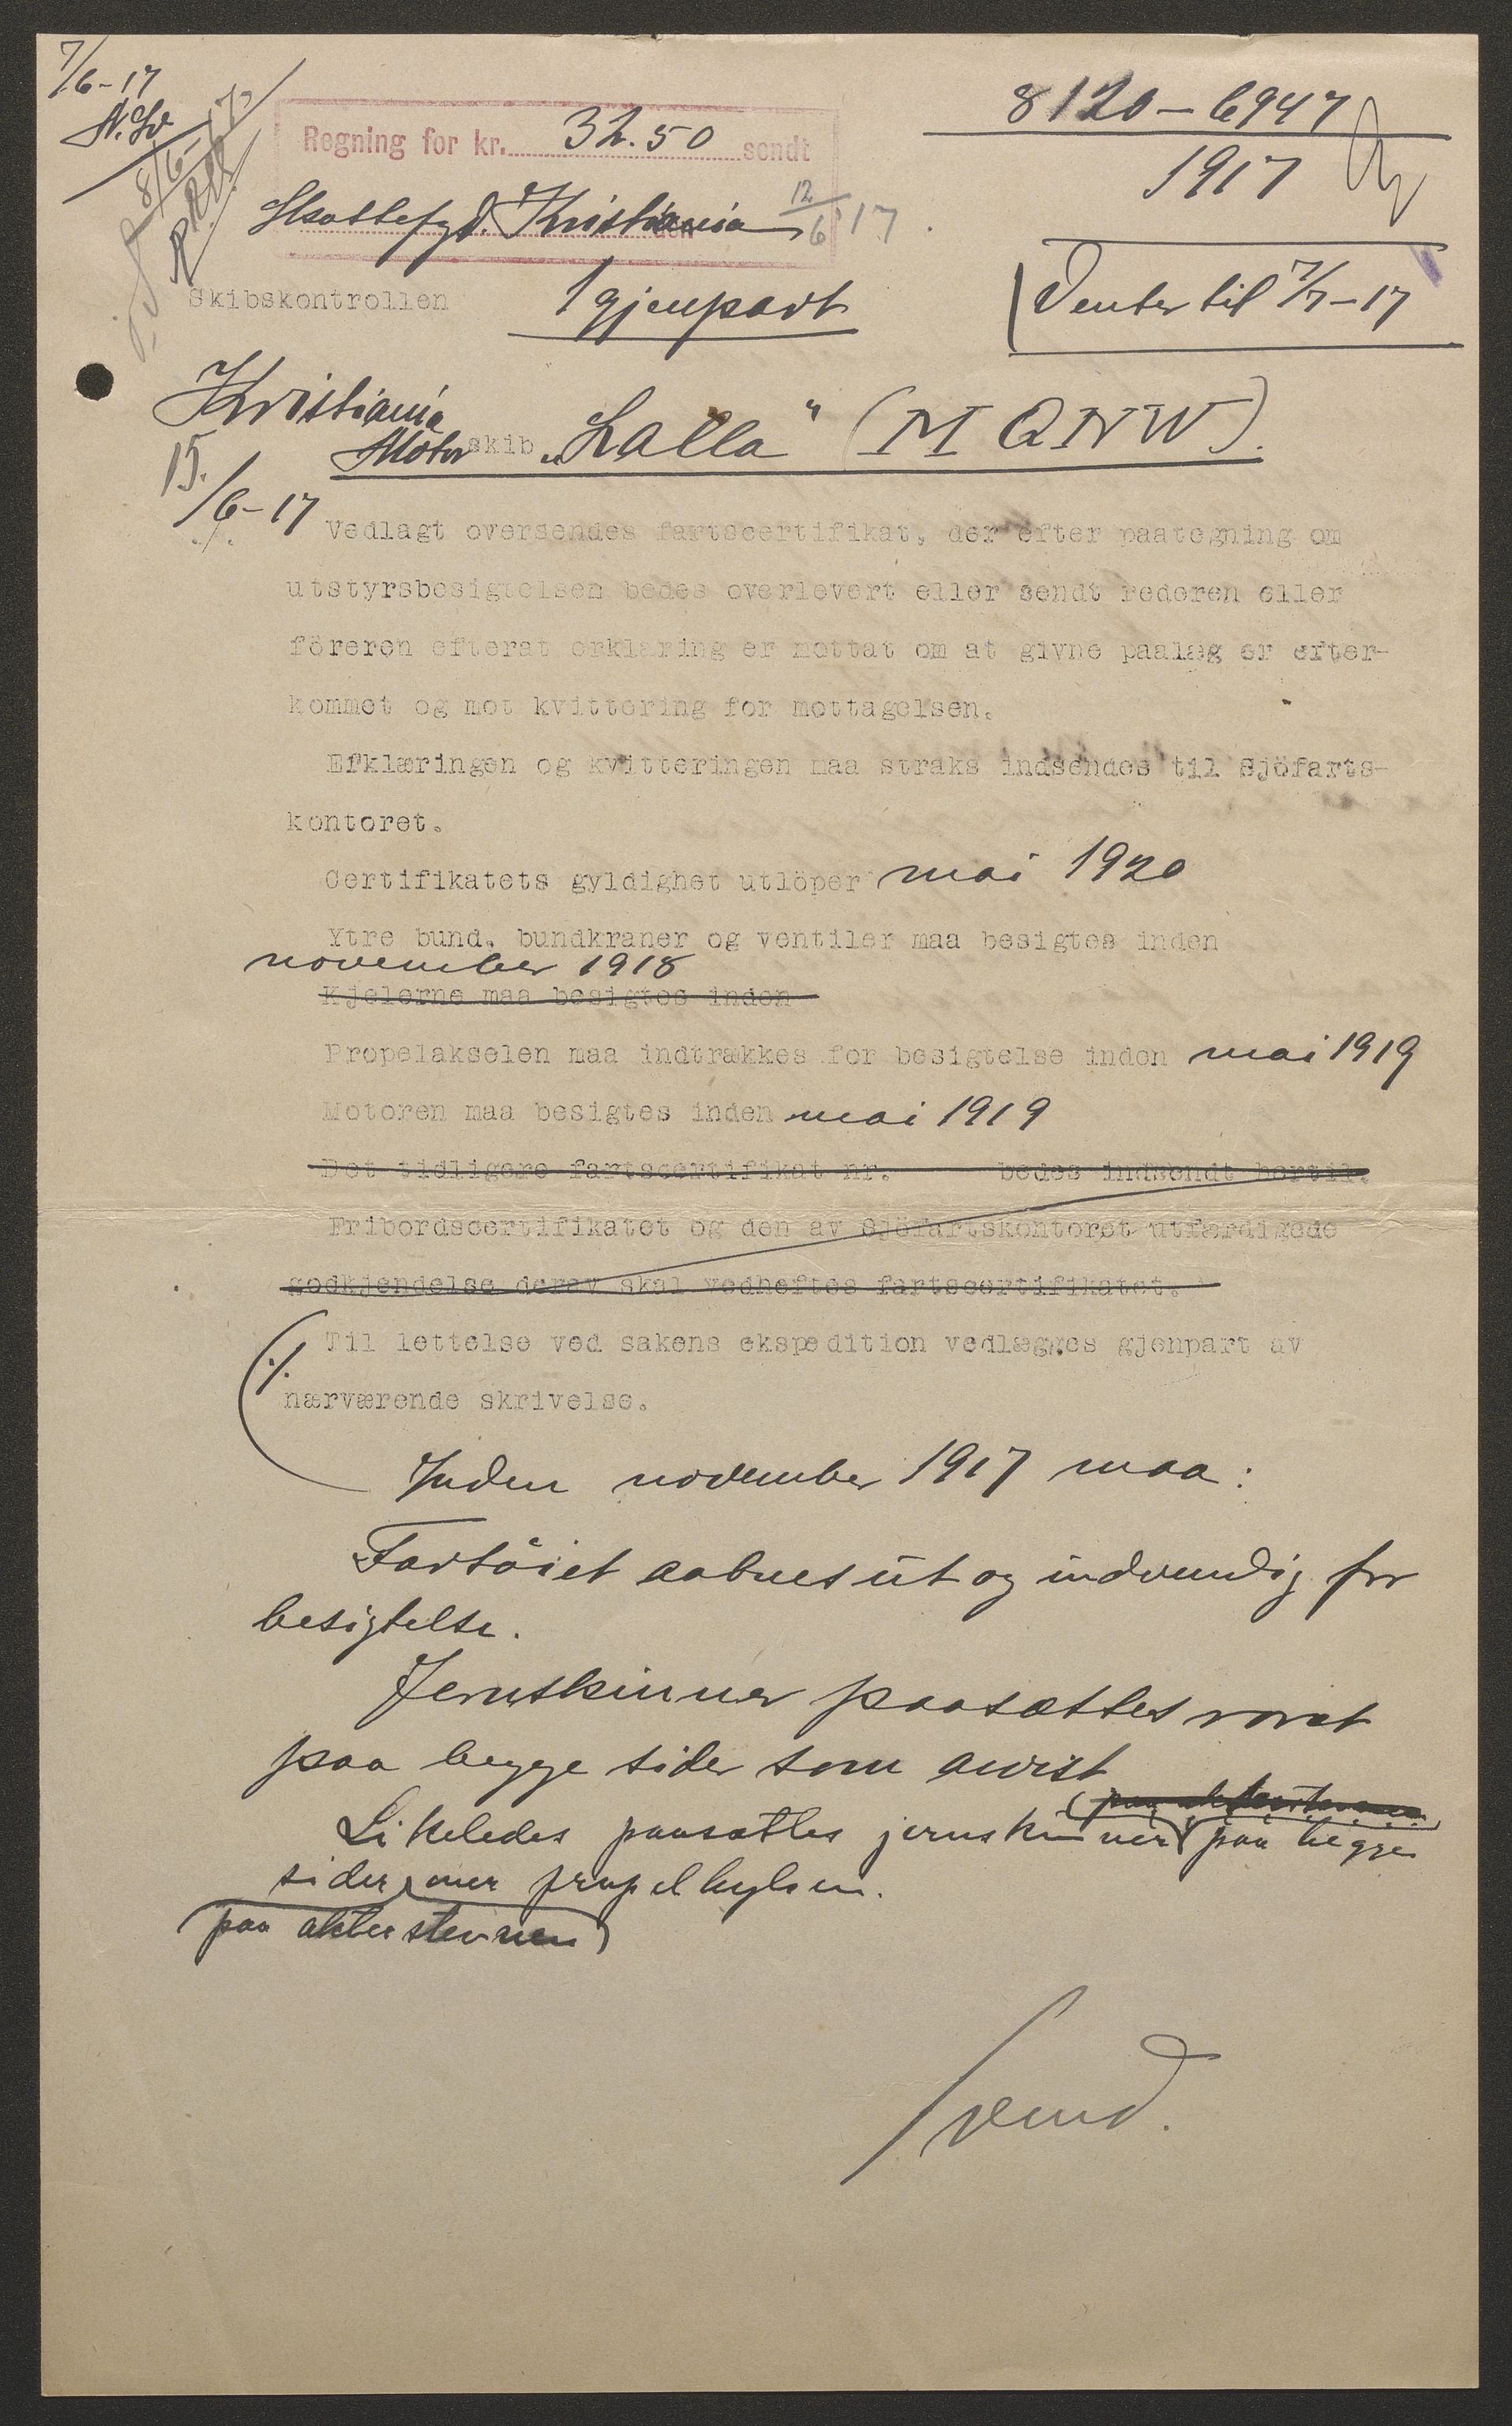 7/6-17
8/6-17
8120-6947
1917
Regning for kr. 32.50 sendt
Skattefgd. Kristiania 12/6 17.
Skibskontrollen
1 gjenpart
Venter til 7/7-17
Kristiania
15./6-17
Motorskib „Lalla" (M Q N W).
Vedlagt oversendes fartscertifikat, der efter paategning om
utstyrsbesigtelsen bedes overlevert eller sendt rederen eller
föreren efterat erklæring er mottat om at givne paalæg er efter-
kommet og mot kvittering for mottagelsen.
Efklæringen og kvitteringen maa straks indsendes til Sjöfarts-
kontoret.
Certifikatets gyldighet utlöper mai 1920
Ytre bund, bundkraner og ventiler maa besigtes inden
november 1918
Kjelerne maa besigtes inden
Propelakselen maa indtrækkes for besigtelse inden mai 1919
Motoren maa besigtes inden mai 1919
Det tidligere fartscertifikat nr. bedes indsendt hertil.
Fribordscertifikatet og den av Sjöfartskontoret utfærdigede
godkjendelse derav skal vedheftes fartscertifikatet.
Til lettelse ved sakens ekspedition vedlægges gjenpart av
./.
nærværende skrivelse.
Inden november 1917 maa:
Fartöiet aabnes ut og indvendig for
besigtelse.
Jernskinner paasættes roret
paa begge sider som anvist
Likeledes paasættes jernskinner paa begge
sider over propelhylsen.
paa akterstevnen